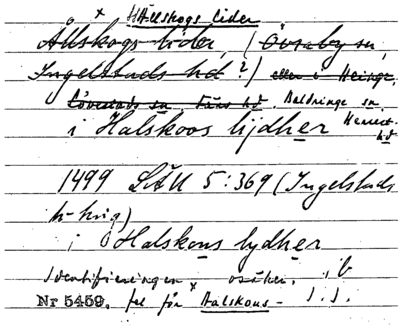 × Hållskogs lider
Ållskogs lider, (Övraby sn,
Ingelstads hd?) eller i Heinge,
Löverads sn, Färs hd. Baldringe sn,
i Halskoos lijdher Herrest. hd
1499 LÄU 5:369 (Ingelstads
h-ting)
i Halskons lydher
Identifieringen osäker,
Nr 5459. fel för × Aalskous- I. I.